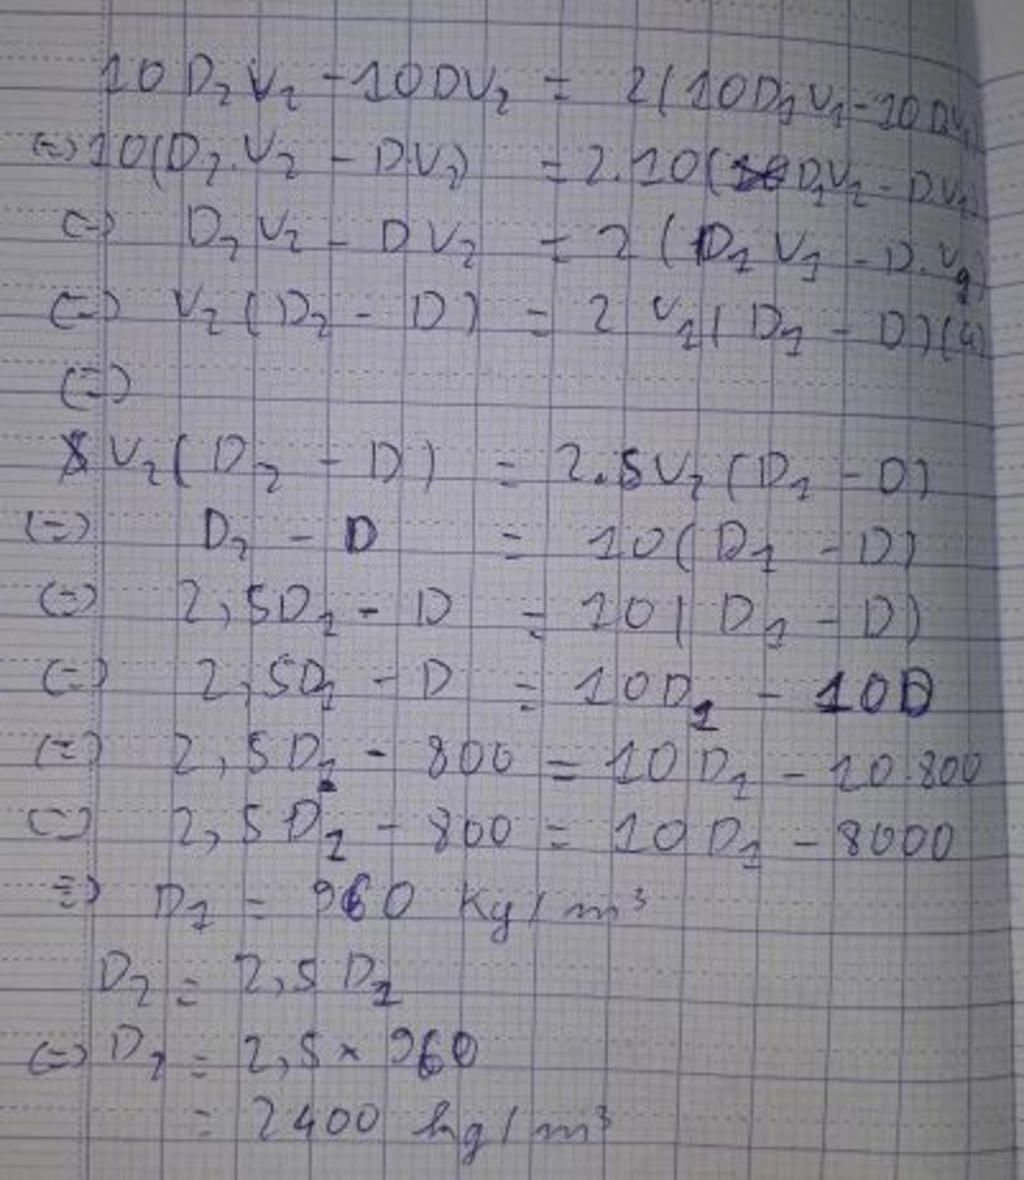 10D₂V₂ - 10DV₂ = 2(10D₁V₁ - 10DV₁)
(=) 10(D₂.V₂ - D.V₂) = 2.10(D₁V₂ - D.V₁)
(=) D₂V₂ - DV₂ = 2(D₁V₁ - D.V₁)
(=) V₂(D₂ - D) = 2V₁(D₁ - D)(4)
(=)
V₂(D₂ - D) = 2.5V₂(D₁ - D)
(=) D₂ - D = 10(D₁ - D)
(=) 2,5D₁ - D = 10(D₁ - D)
(=) 2,5D₁ - D = 10D₁ - 10D
(=) 2,5D₁ - 800 = 10D₁ - 10.800
(=) 2,5D₁ - 800 = 10D₁ - 8000
=) D₁ = 960 Kg/m³
D₂ = 2,5D₁
(=) D₂ = 2,5 × 960
= 2400 kg/m³